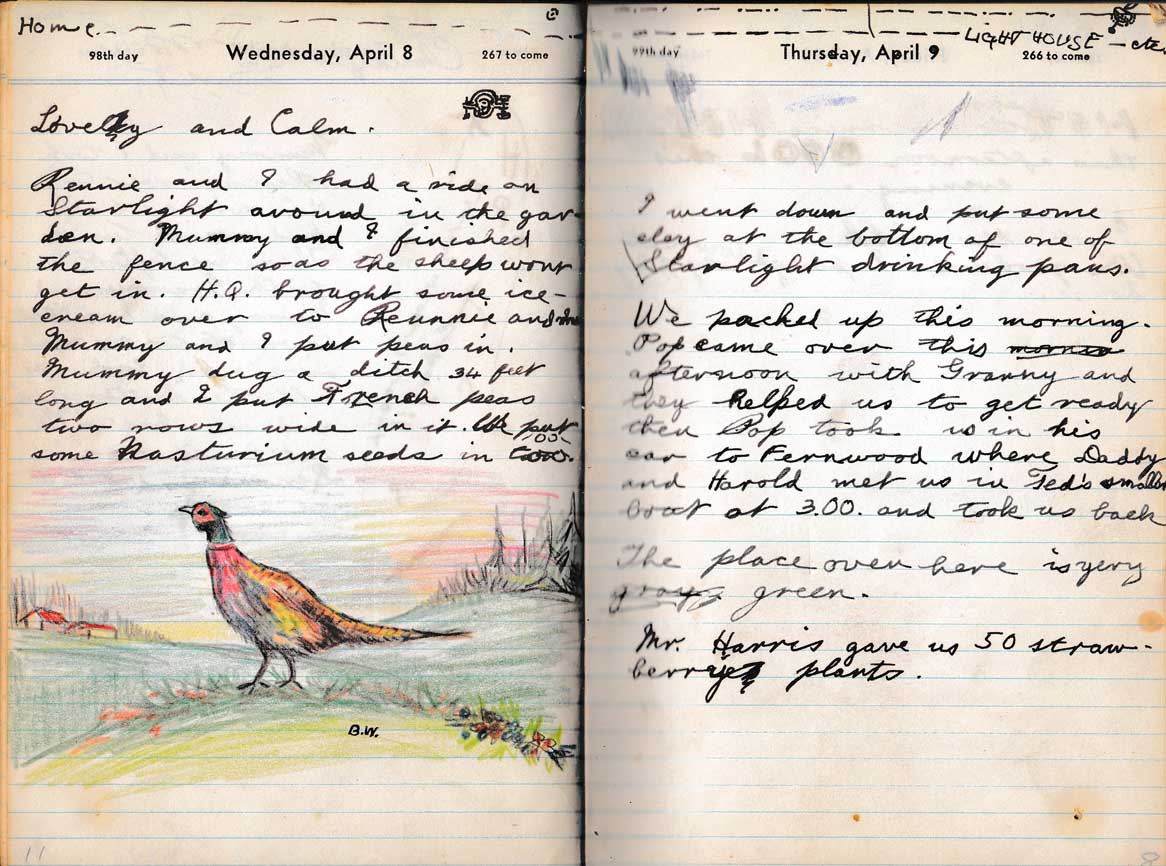 Home
98th day Wednesday, April 8 267 to come
Lovely and Calm.
Rennie and I had a ride on
Starlight around in the gar-
den. Mummy and I finished
the fence so as the sheep wont
get in. H.Q. brought some ice-
cream over to Reunnie and me
Mummy and I put peas in.
Mummy dug a ditch 34 feet
long and I put French peas
two rows wide in it. We put
some Nasturium seeds in too.
B.W.
11
LIGHT HOUSE - etc.
99th day Thursday, April 9 266 to come
I went down and put some
clay at the bottom of one of
Starlight drinking pans.
We packed up this morning.
Pop came over this mornin
afternoon with Granny and
they helped us to get ready
then Pop took us in his
car to Fernwood where Daddy
and Harold met us in Ted's smaller
boat at 3.00. and took us back
The place over here is very
green.
Mr. Harris gave us 50 straw-
berry plants.